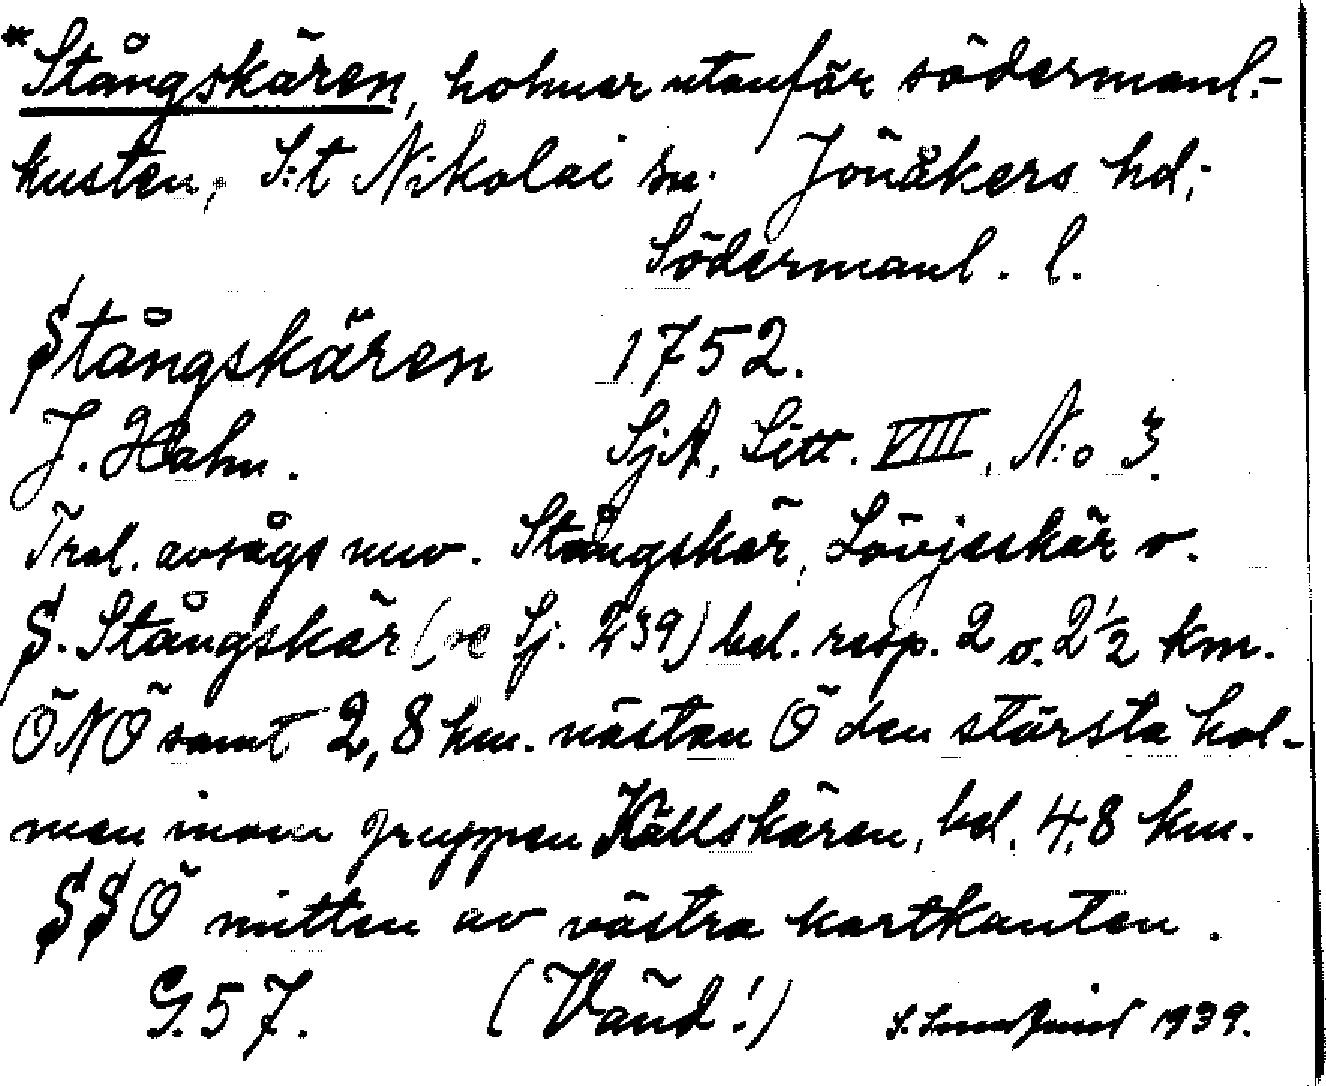 *Stångskären, holmar utanför södermanl.-
kusten, S:t Nikolai sn; Jönåkers hd;
Södermanl. l.
Stångskären 1752.
J. Hahn. SjA, Litt. VIII, N:o 3.
Trol. avsågs nuv. Stångskär, Lövjeskär o.
S. Stångskär (se Sj. 239) bel. resp. 2 o. 2½ km.
ÖNÖ samt 2,8 km. nästan Ö den största hol-
men inom gruppen Källskären, bel. 4,8 km.
SSÖ mitten av västra kartkanten.
G.57. (Vänd!) 1939.